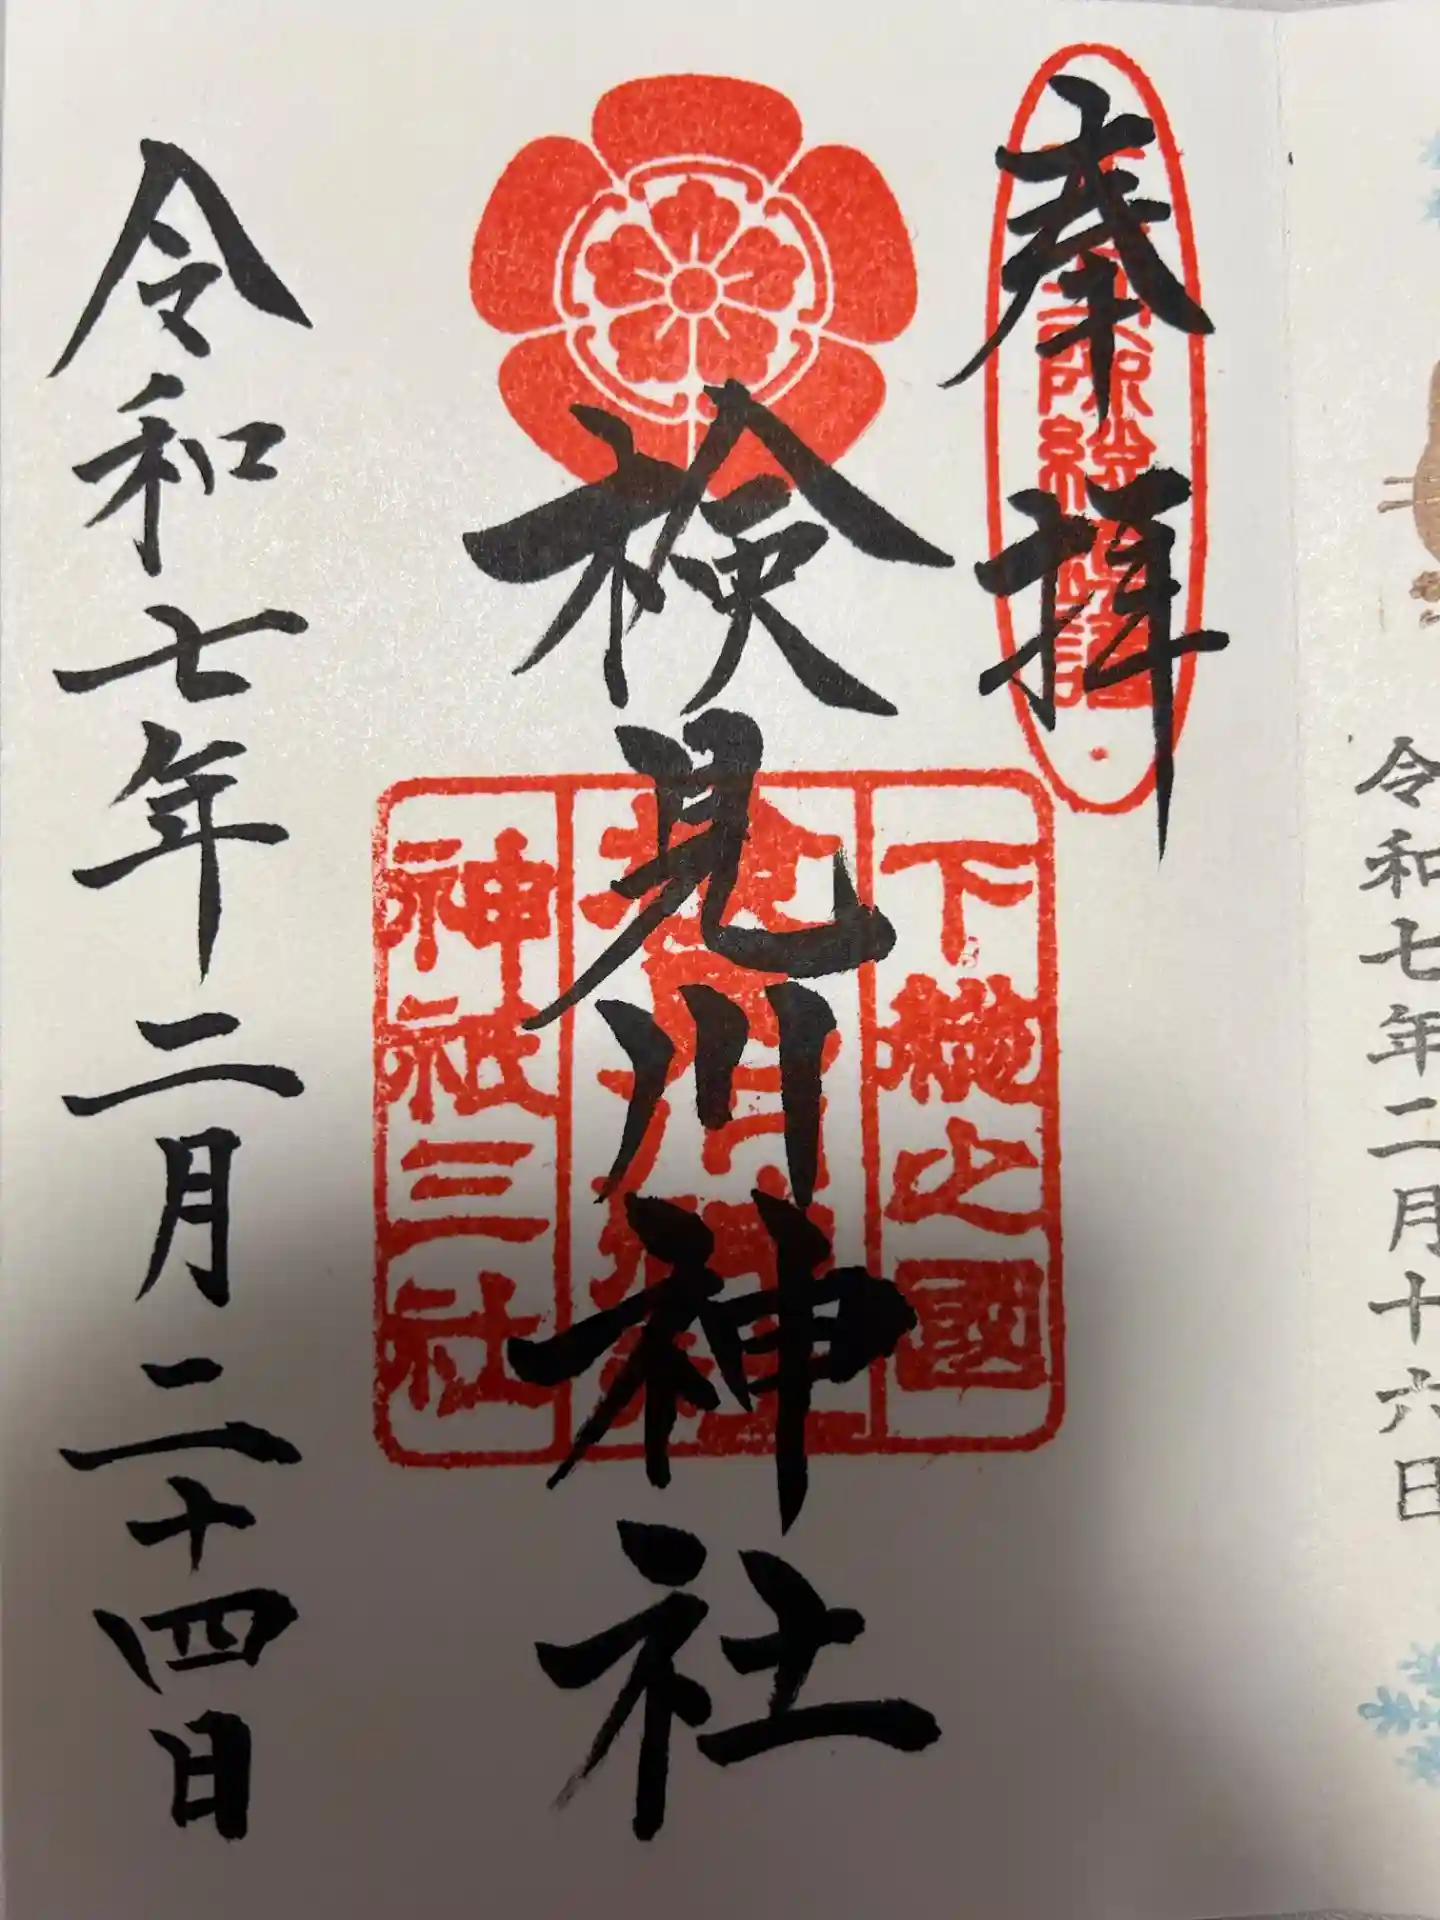 令和七年二月十六日
奉拝
検見川神社
下総之國
神祇三社
令和七年二月二十四日